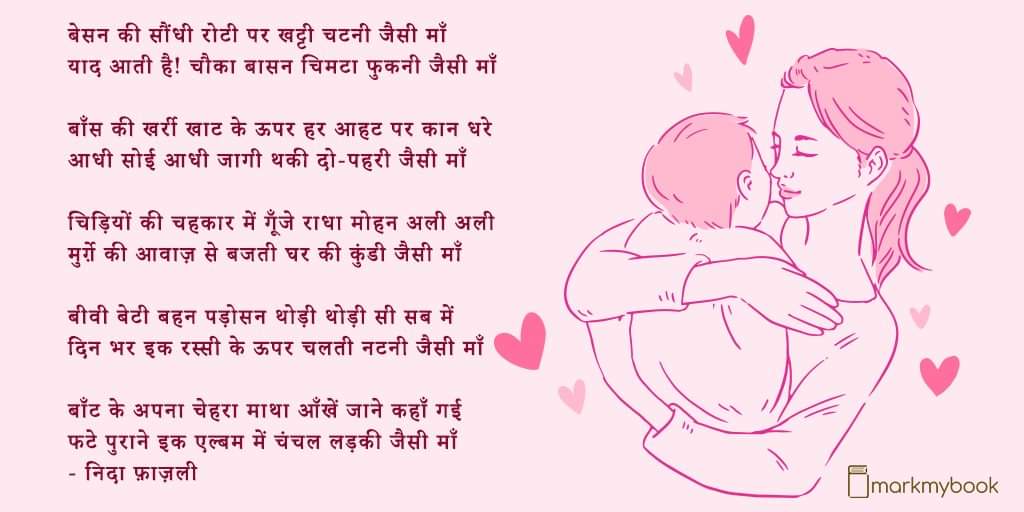 बेसन की सौंधी रोटी पर खट्टी चटनी जैसी माँ
याद आती है! चौका बासन चिमटा फुकनी जैसी माँ
बाँस की खर्री खाट के ऊपर हर आहट पर कान धरे
आधी सोई आधी जागी थकी दो-पहरी जैसी माँ
चिड़ियों की चहकार में गूँजे राधा मोहन अली अली
मुर्ग़े की आवाज़ से बजती घर की कुंडी जैसी माँ
बीवी बेटी बहन पड़ोसन थोड़ी थोड़ी सी सब में
दिन भर इक रस्सी के ऊपर चलती नटनी जैसी माँ
बाँट के अपना चेहरा माथा आँखें जाने कहाँ गई
फटे पुराने इक एल्बम में चंचल लड़की जैसी माँ
- निदा फ़ाज़ली
markmybook